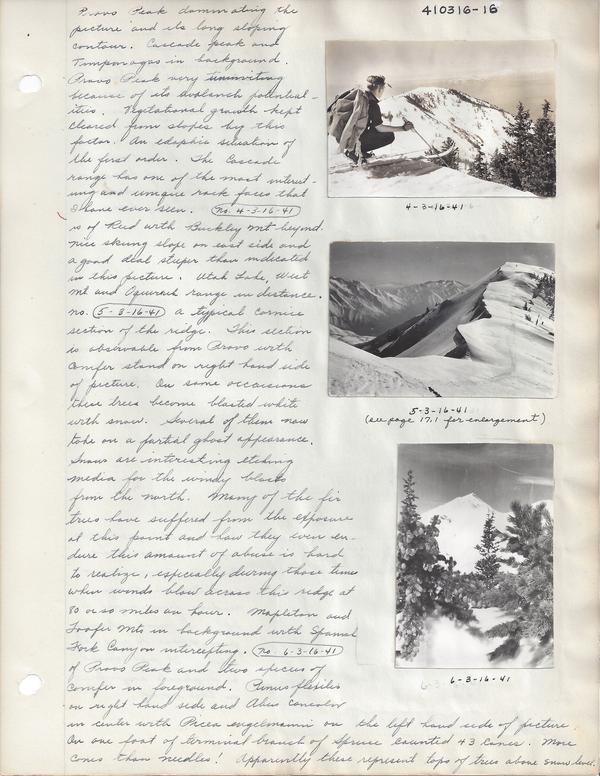 410316-16
Provo Peak dominating the
picture and its long sloping
contour. Cascade peak and
Timponagos in background.
Provo Peak very uninviting
because of its avalanch potential-
ities. Vegitational growth kept
cleared from slopes by this
factor. An edaphic situation of
the first order. The Cascade
range has one of the most interest-
ing and unique rock faces that
I have ever seen. no. 4-3-16-41
is of Reed with Buckley Mt beyond.
nice skiing slope on east side and
a good deal steeper than indicated
in this picture. Utah Lake, West
Mt and Oquirrah range in distance.
no. 5-3-16-41 a typical cornice
section of the ridge. This section
is observable from Provo with
Conifer stand on right hand side
of picture. On some occaisions
these trees become blasted white
with snow. Several of them now
take on a partial ghost appearance.
Snows are interesting etching
media for the windy blasts
from the north. Many of the fir
trees have suffered from the exposure
at this point and how they even en-
dure this amount of abuse is hard
to realize, especially during those times
when winds blow across this ridge at
80 or so miles an hour. Mapleton and
Loafer Mts in background with Spanish
Fork Canyon intercepting. no. 6-3-16-41
of Provo Peak and two species of
Conifer in foreground. Pinus flexilis
on right hand side and Abies Concolor
in center with Picea engelmanni on the left hand side of picture.
On one foot of terminal branch of Spruce counted 43 Cones. More
cones than needles! Apparently these represent tops of trees above snow level.
4-3-16-41
5-3-16-41
(see page 17.1 for enlargement)
6-3-16-41